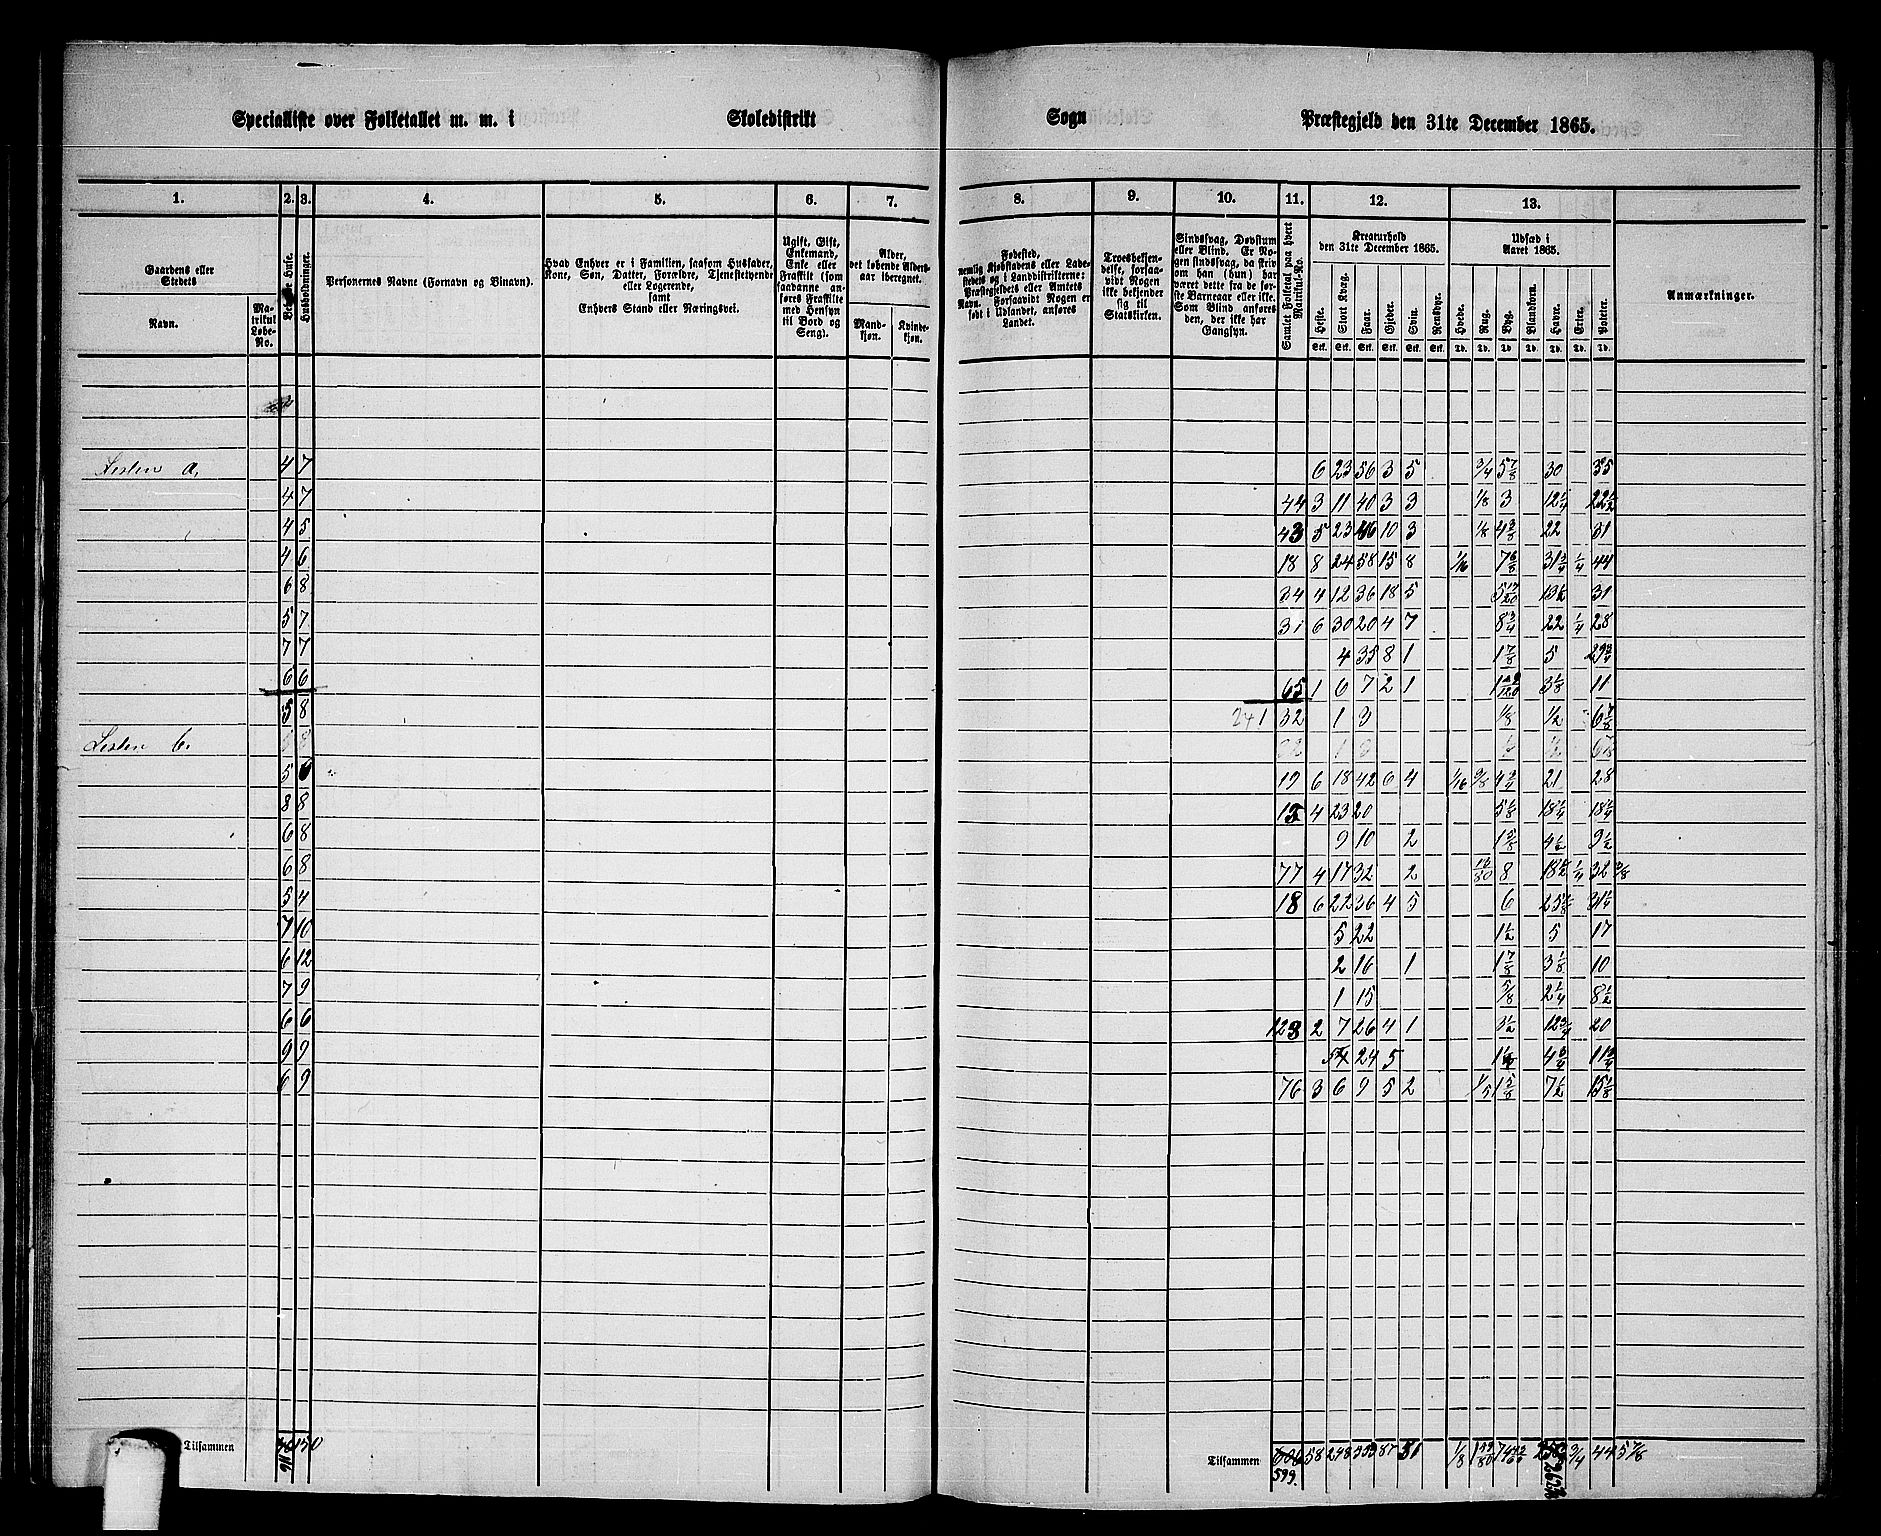 Specialliste over Folketallet m. m. i Skoledistrikt Sogn Præstegjeld den 31te December 1865.
1. 2. 3. 4. 5. 6. 7. 8. 9. 10. 11. 12. 13.
Gaardens eller Stedets
Navn.
Matrikul Løbe-No.
Beboede Huse.
Husholdninger.
Personernes Navne (Fornavn og Binavn).
Hvad Enhver er i Familien, saasom Husfader, Kone, Søn, Datter, Forældre, Tjenestetyende eller Logerende,
samt
Enhvers Stand eller Næringsvei.
Ugift, Gift, Enkemand, Enke eller Fraskilt (som saadanne anføres Fraskilte med Hensyn til Bord og Seng).
Alder, det løbende Aldersaar iberegnet.
Mandkjøn. Kvindekjøn.
Fødested, nemlig Kjøbstadens eller Ladestedets og i Landdistrikterne: Præstegjeldets eller Amtets Navn. Forsaavidt Nogen er født i Udlandet, anføres Landet.
Troesbekjendelse, forsaavidt Nogen ikke bekjender sig til Statskirken.
Sindssvag, Døvstum eller Blind. Er Nogen sindssvag, da skrives om han (hun) har været dette fra de første Barneaar eller ikke. Som Blind anføres den, der ikke har Gangsyn.
Samlet Folketal paa hvert Matrikul-No.
Kreaturhold den 31te December 1865.
Heste. Stort Kvæg. Faar. Gjeder. Svin. Rensdyr.
Stk. Stk. Stk. Stk. Stk. Stk.
Udsæd i Aaret 1865.
Hvede. Rug. Byg. Blandkorn. Havre. Erter. Poteter.
Td. Td. Td. Td. Td. Td. Td.
Anmærkninger.
4 7 6 23 56 3 5 3/4 5 7/8 30 35
4 7 44 3 11 40 3 3 1/8 3 12 1/4 22 1/2
4 5 43 5 23 46 10 3 1/8 22 31
4 6 18 8 24 58 15 8 1/16 31 3/4 1/4 44
6 8 34 4 12 36 18 5 5 17/20 13 1/2 31
5 7 31 6 30 20 4 7 8 3/4 22 1/4 28
7 7 4 35 8 1 1 7/8 5 29 3/4
6 6 65 1 6 7 2 1 3 1/8 11
5 8 241 32 1 3 1/8 1/2 6 7/8
5 6 19 6 18 42 6 4 1/16 4 3/4 21 28
8 8 15 4 23 20 5 1/8 18 1/4 18 1/4
6 8 9 10 2 1 5/8 4 1/2 9 1/2
6 8 77 4 17 32 2 8 18 1/2 1/4 32 3/8
5 4 18 6 22 36 4 5 6 31 1/4
7 10 5 22 1 1/2 5 17
6 12 2 16 1 1 7/8 3 1/8 10
7 9 1 15 5/8 2 1/4 8 1/2
6 6 123 2 7 26 4 1 3 1/2 12 3/4 20
9 9 4 24 5 4 3/4 11 3/4
6 9 76 3 6 9 5 2 1/5 1 5/8 7 1/2 15 1/8
Tilsammen 150
Tilsammen 58 248 87 51 1/8 3/4 445 7/8
599.